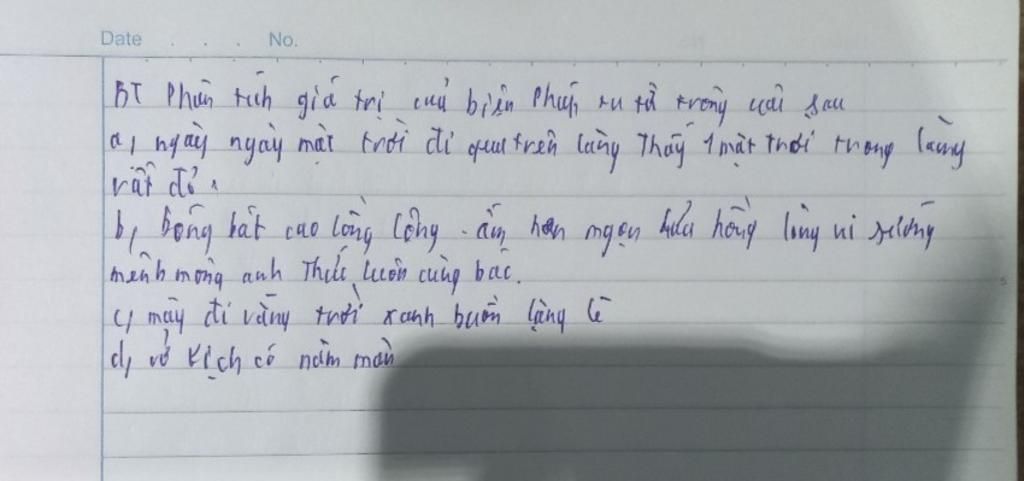 Date . . . No.
BT Phân tích giá trị của biện pháp tu từ trong câu sau
a, ngày ngày mặt trời đi qua trên lăng Thấy 1 mặt trời trong lăng
rất đỏ.
b, Bóng bát cao lồng lộng. ấm hơn ngọn lửa hồng lòng vui sướng
mênh mông anh Thức luôn cùng bác.
c, mây đi vắng trời xanh buồn lặng lẽ
d, vở kịch có năm màn